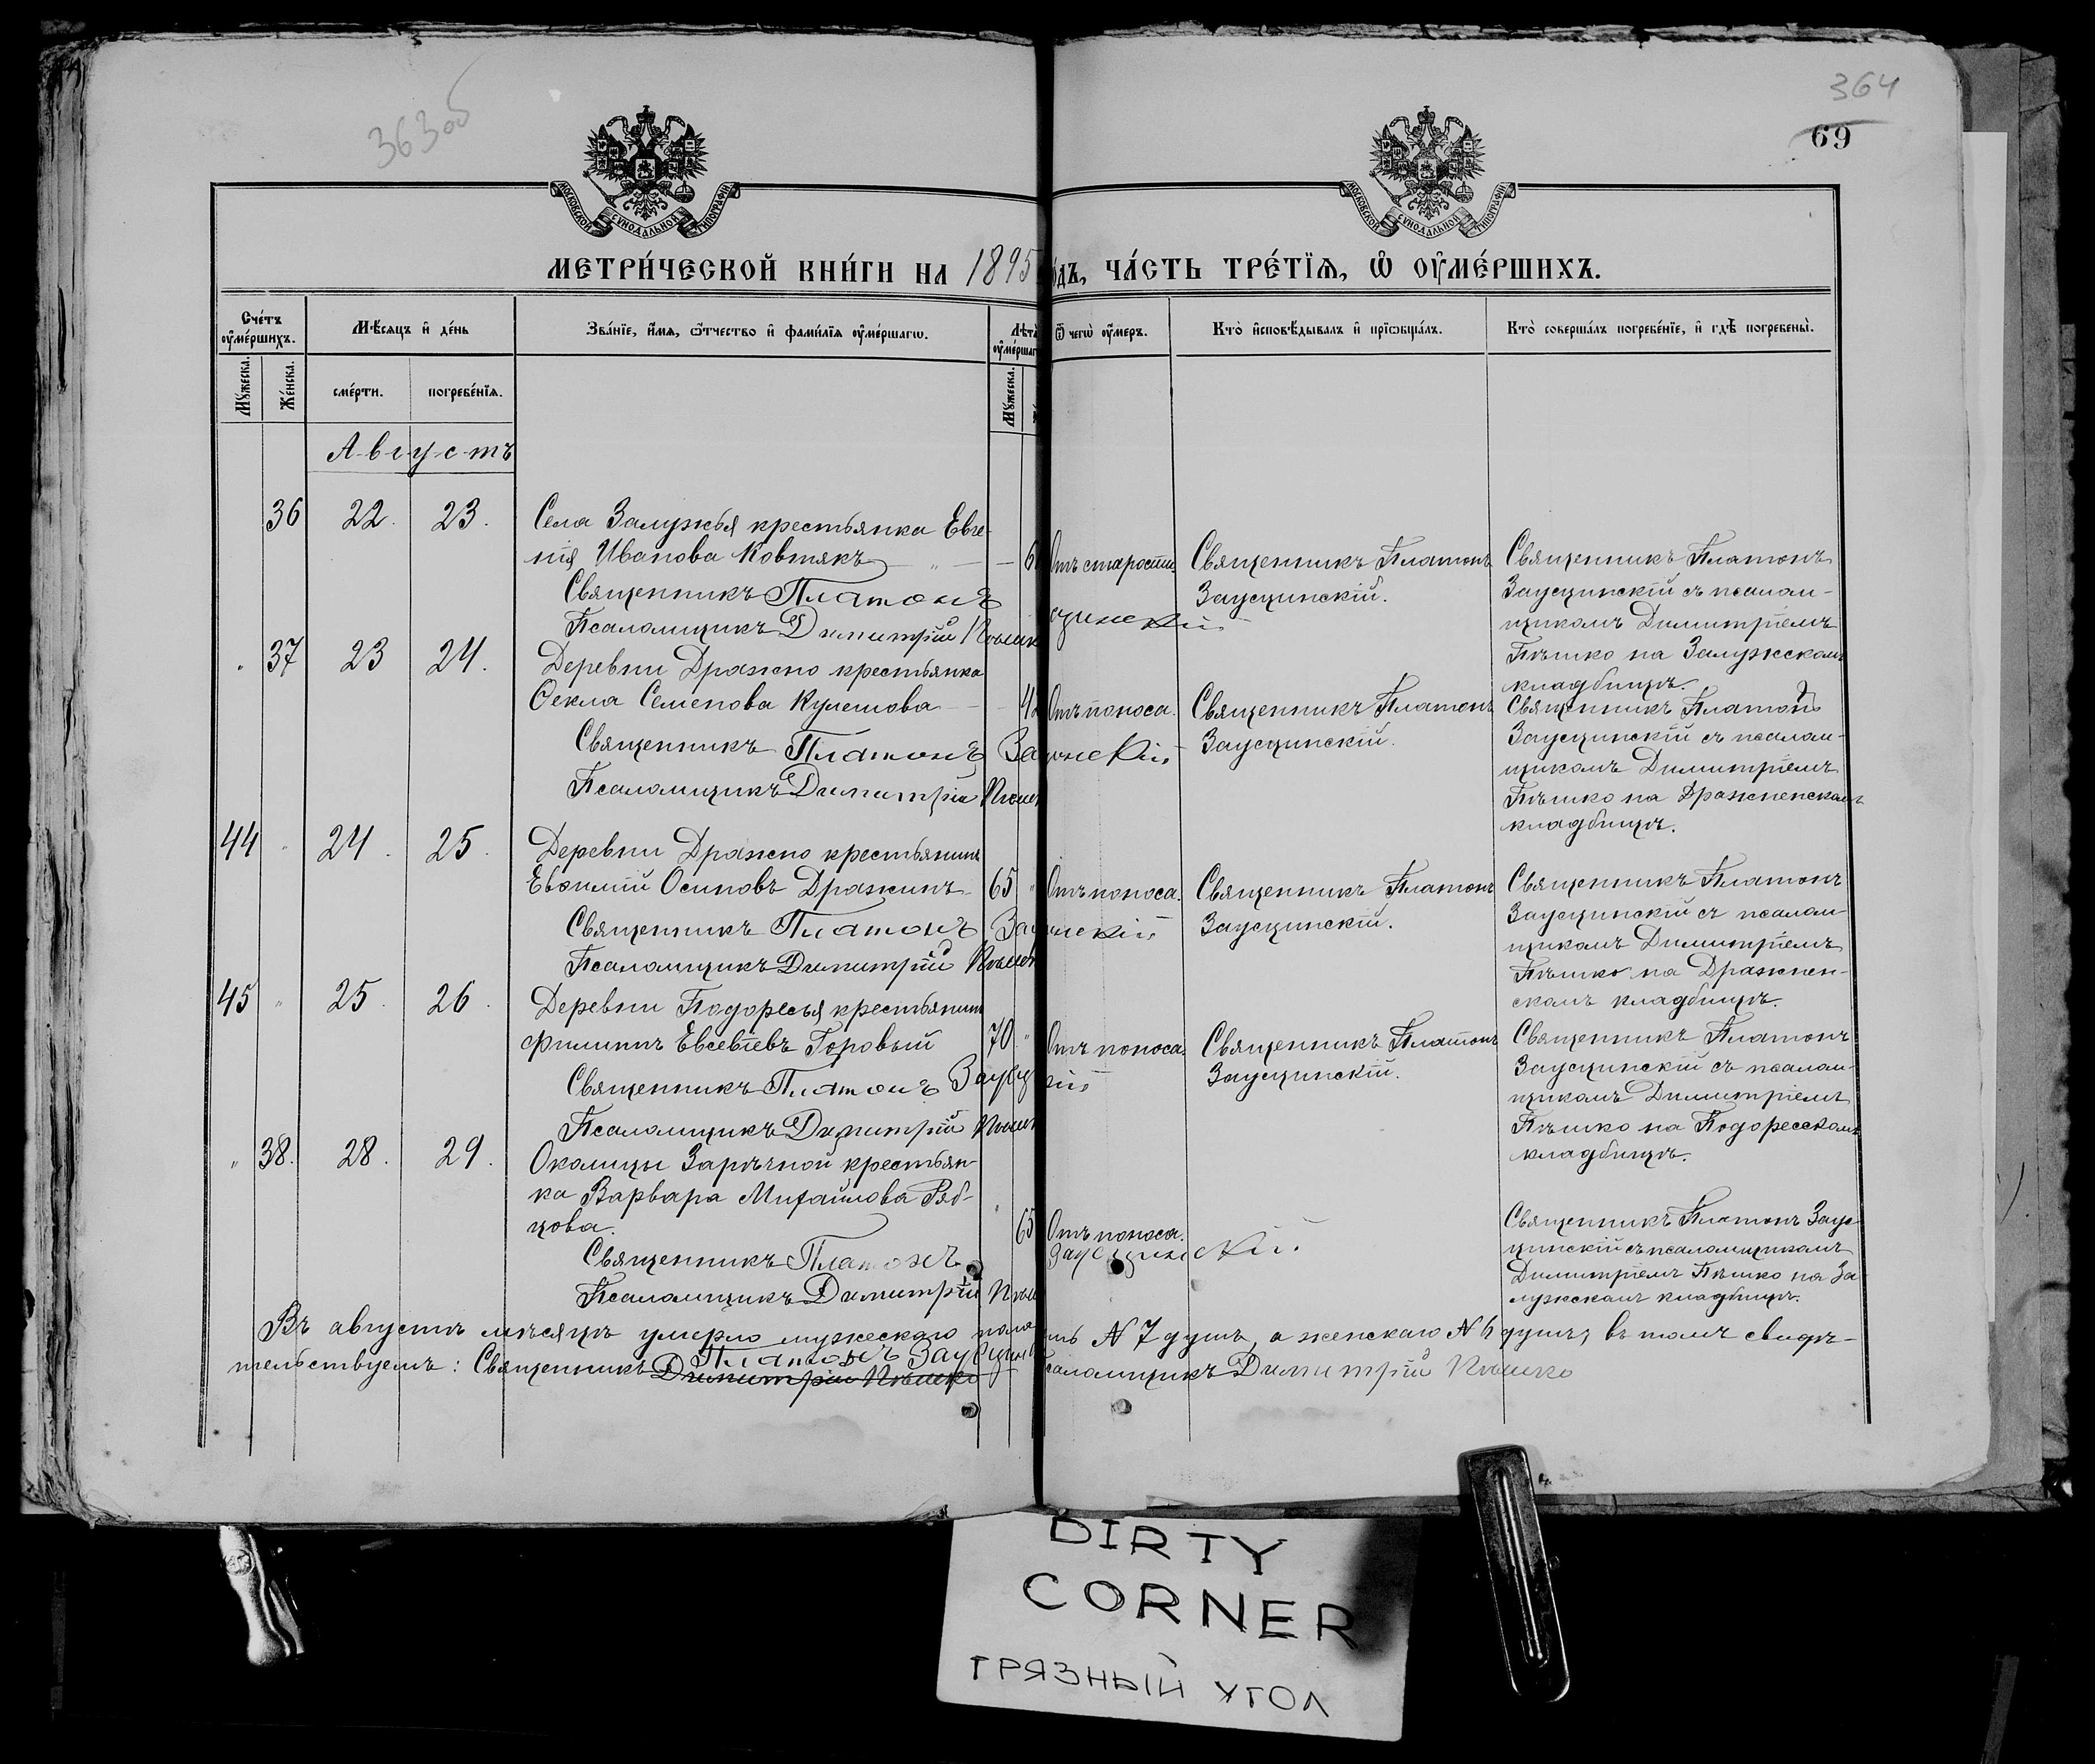 363об
364
69
МОСКОВСКОЙ СѴНОДАЛЬНОЙ ТИПОГРАФІИ
МОСКОВСКОЙ СѴНОДАЛЬНОЙ ТИПОГРАФІИ
МЕТРИ́ЧЕСКОЙ КНИ́ГИ НА 1895 ѻдъ, ЧА́СТЬ ТРЕ́ТЇѦ, Ѽ ОУ҆МЕ́РШИХЪ.
Сче́тъ оу҆ме́ршихъ.
Мѣ́сяцъ и҆ де́нь
Зва́нїе, и҆́мя, ѻ҆́тчество и҆ фами́лїя оу҆ме́ршагѡ.
Лѣта оу҆ме́ршаг
Ѿ чегѡ̀ оу҆́меръ.
Кто̀ и҆сповѣ́дывалъ и҆ прїѡбща́лъ.
Кто̀ соверша́лъ погребе́нїе, и҆ гдѣ̀ погребены̀.
Мꙋ́жеска.
Же́нска.
сме́рти.
погребе́нїя.
Мꙋ́жеска.
Августъ
36 22. 23. Села Залужья крестьянка Евге-
нія Иванова Ковтякъ
Отъ старости.
Священникъ Платонъ
Заусцинскій.
Священникъ Платонъ
Заусцинскій съ псалом-
щикомъ Димитріемъ
Пѣшко на Залужскомъ
кладбищѣ.
Священникъ Платонъ
сцинскій
Псаломщикъ Димитрій Пѣшк
37 23 24. Деревни Дражно крестьянка
Ѳекла Семенова Кулешова
42 Отъ поноса.
Священникъ Платонъ
Заусцинскій.
Священникъ Платонъ
Заусцинскій съ псалом-
щикомъ Димитріемъ
Пѣшко на Дражненскомъ
кладбищѣ.
Священникъ Платонъ За инскій
Псаломщикъ Димитрій Пѣшк
44 " 24. 25. Деревни Дражно крестьянинъ
Евѳимій Осиповъ Дражинъ
65 " Отъ поноса.
Священникъ Платонъ
Заусцинскій.
Священникъ Платонъ
Заусцинскій съ псалом-
щикомъ Димитріемъ
Пѣшко на Дражнен-
скомъ кладбищѣ.
Священникъ Платонъ Зау инскій
Псаломщикъ Димитрій Пѣшк
45 " 25. 26. Деревни Подоресья крестьянин
Филиппъ Евсевіевъ Горовый
70. " Отъ поноса.
Священникъ Платонъ
Заусцинскій.
Священникъ Платонъ
Заусцинскій съ псалом-
щикомъ Димитріемъ
Пѣшко на Подоресскомъ
кладбищѣ.
Священникъ Платонъ Заусц кій
Псаломщикъ Димитрій Пѣшк
" 38. 28. 29. Околицы Зарѣчной крестьян-
ка Варвара Михайлова Ряб-
цова.
" 65 Отъ поноса.
Священникъ Платонъ Заус-
цинскій съ псаломщикомъ
Димитріемъ Пѣшко на За
лужскомъ кладбищѣ.
Священникъ Платонъ Заусцинскій.
Псаломщикъ Димитрій Пѣш
Въ августѣ мѣсяцѣ умерло мужескаго пола N 7 душъ, а женскаго N душъ, въ томъ свидѣ-
тельствуемъ: Священникъ Димитрій Пѣшко Платонъ Заусцинс саломщикъ Димитрій Пѣшко
DIRTY
CORNER
ГРЯЗНЫЙ УГОЛ